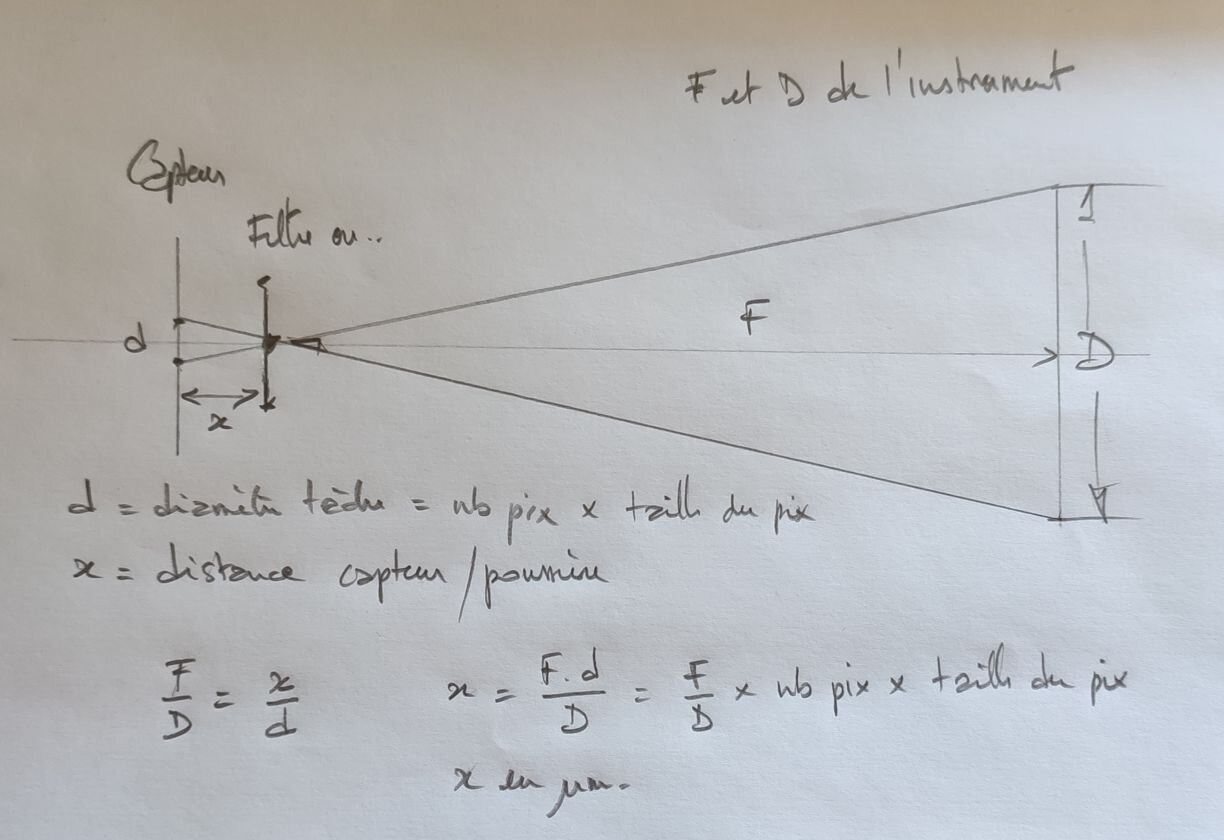 F et D de l'instrument
Capteur
Filtre ou..
1
F
d
D
x
d = diamètre tâche = nb pix x taille du pix
x = distance capteur / poussière
F/D = x/d
x = F.d/D = F/D x nb pix x taille du pix
x en µm.